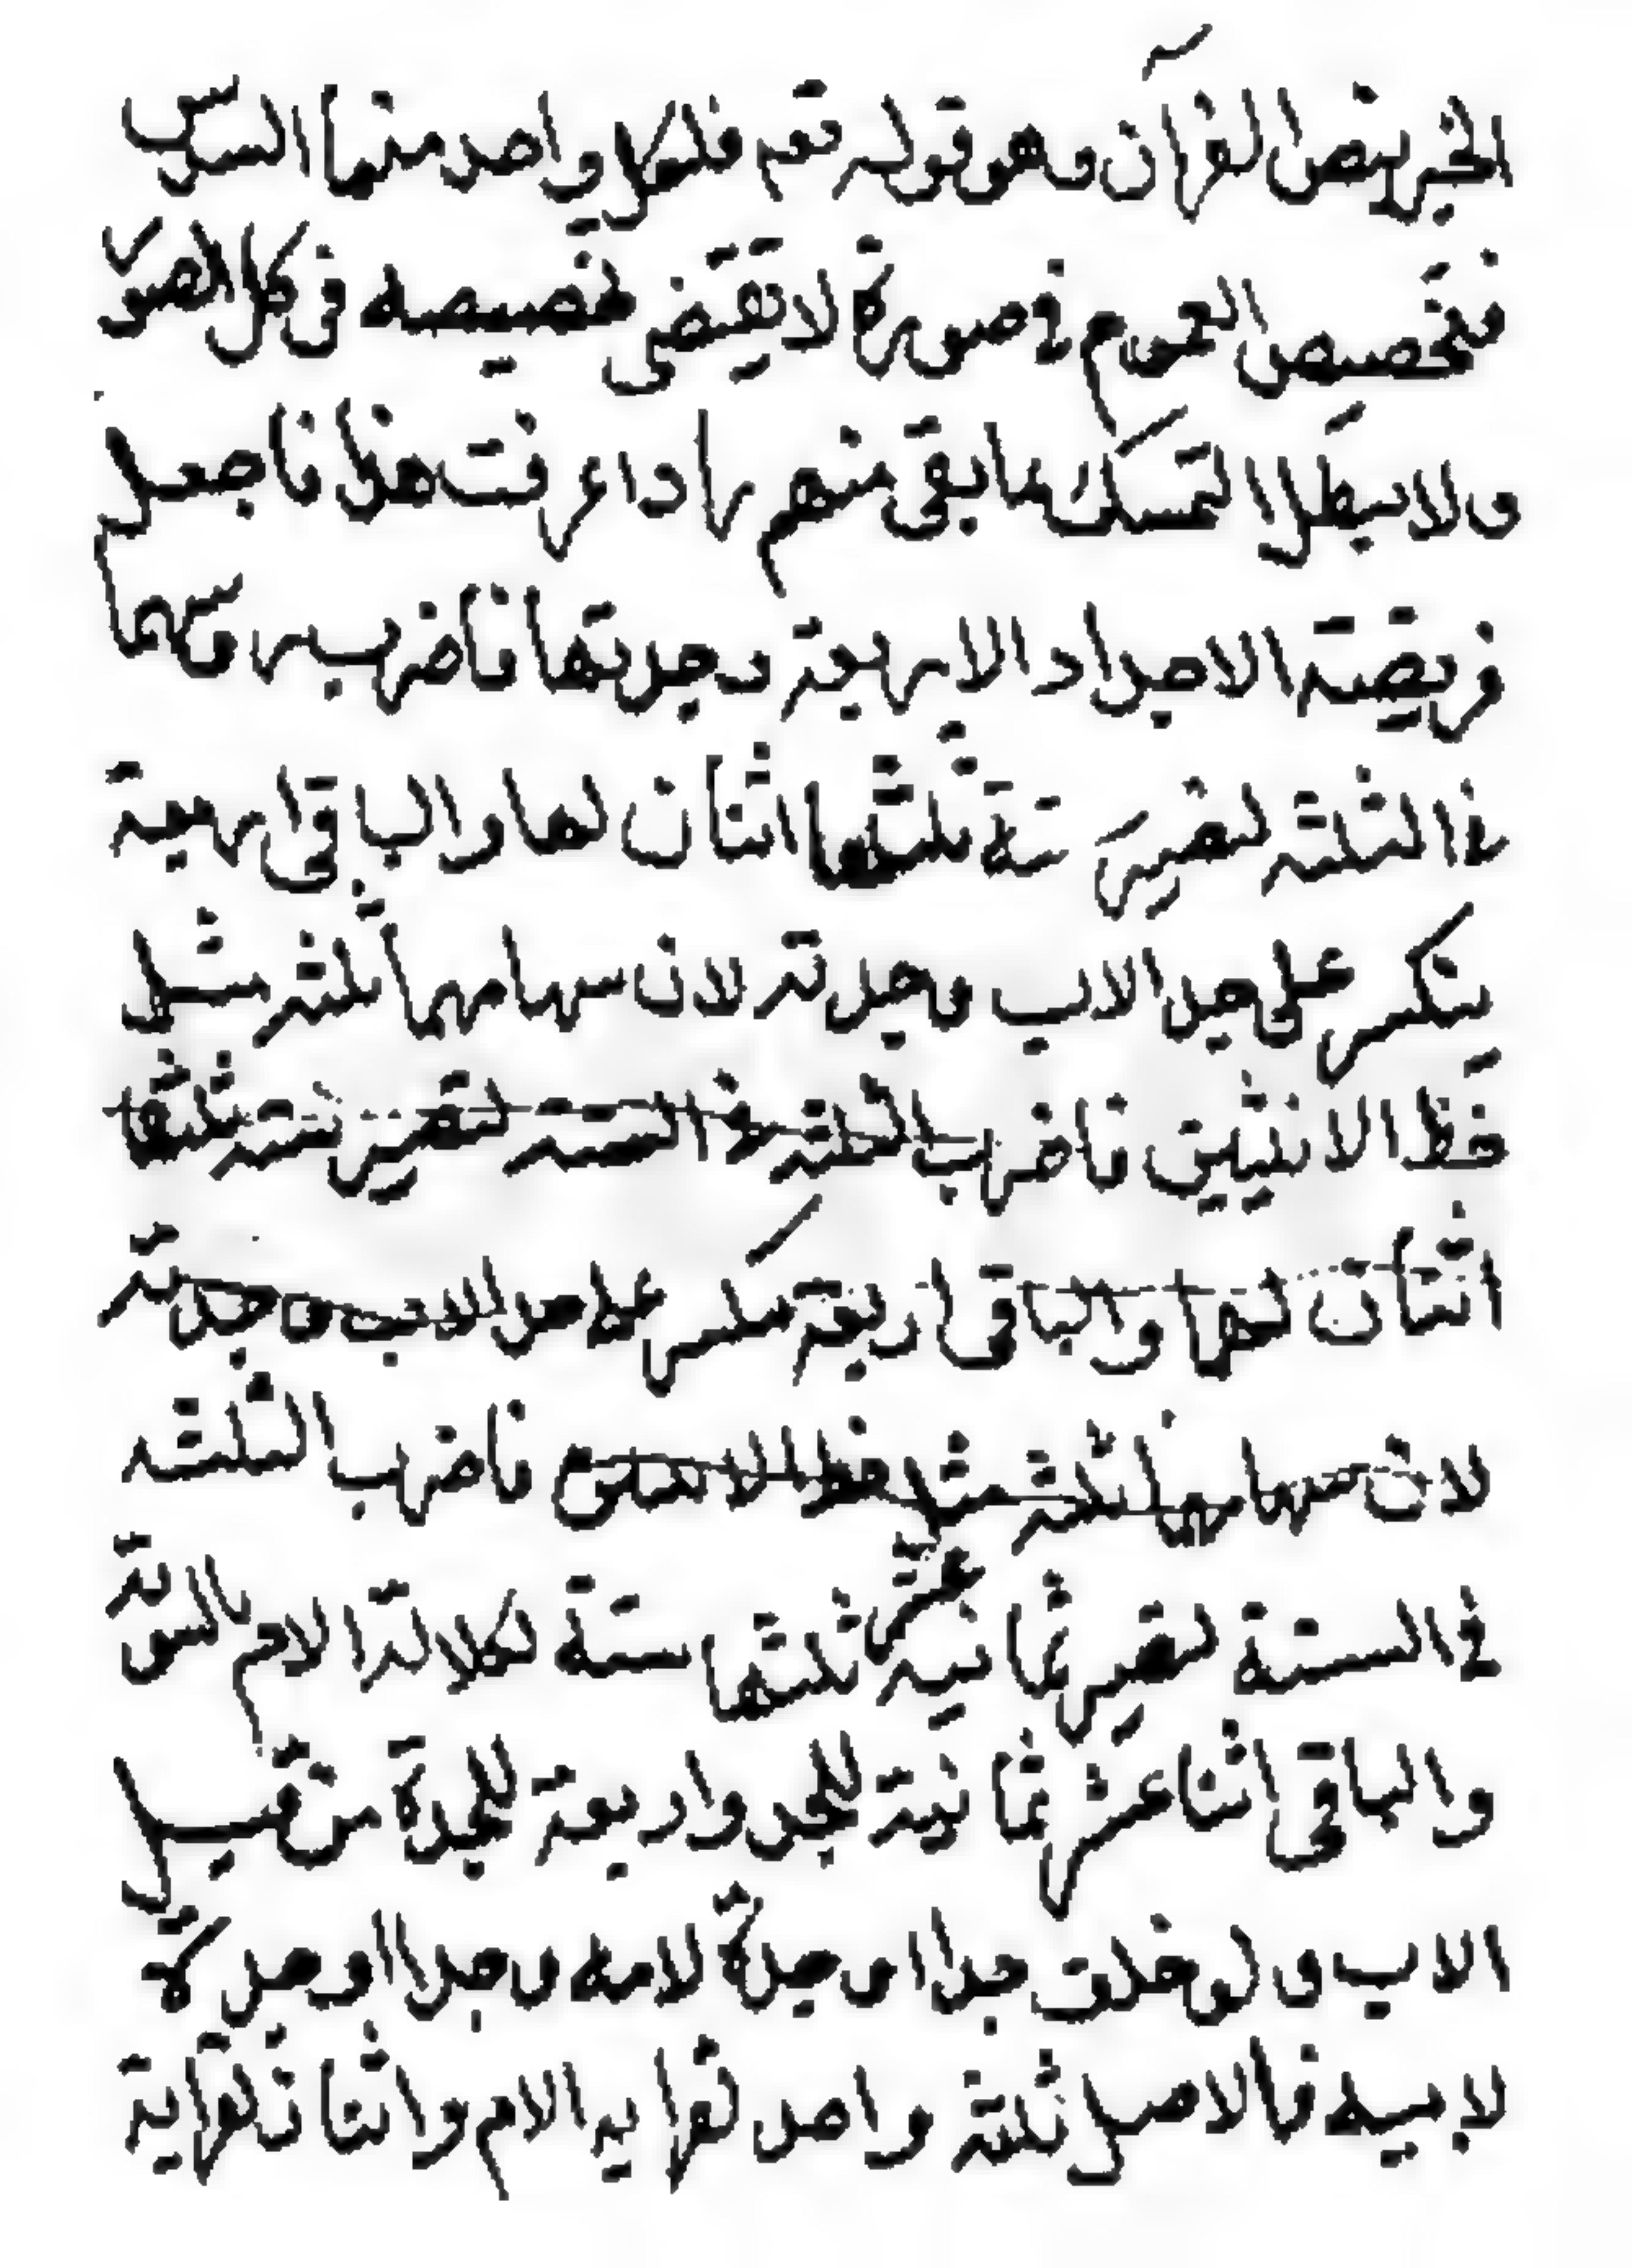 الخبر بنص القرآن وهو قوله تعم فلكل واحد منهما السدس
فتخصيص العموم في صورة لا تقتضى تخصيصه في كل الصور
ولا يبطل التمسك بما بقى منهم اذا عرفت هذا فاجعل
فريضة الاجداد الاربعة وجدتها فاضرب سهامها
في الثلثة لتصير ستة ثلثها اثنان لها والباقى اربعة
ينكسر على جد الاب وجدته لان سهامهما ثلثه مثل
حظ الانثيين فاضرب الثلثة في الستة لتصير ستة ثلثها
اثنان لهما والباقى اربعة ينكسر على جد الاب وجدته
لان سهامهما ثلثه مثل حظ الانثيين فاضرب الثلثه
في الستة لتصير ثمانيه عشر ثلثها ستة لكلالة الام بالسوية
والباقى اثنا عشر ثمانية للجد واربعة للجدة من قبل
الاب ولو خلف جدا او جدة لامه وجدا او جدة
لابيه فالاصل ثلثة واحد لقرابه الام واثنان لقرابة